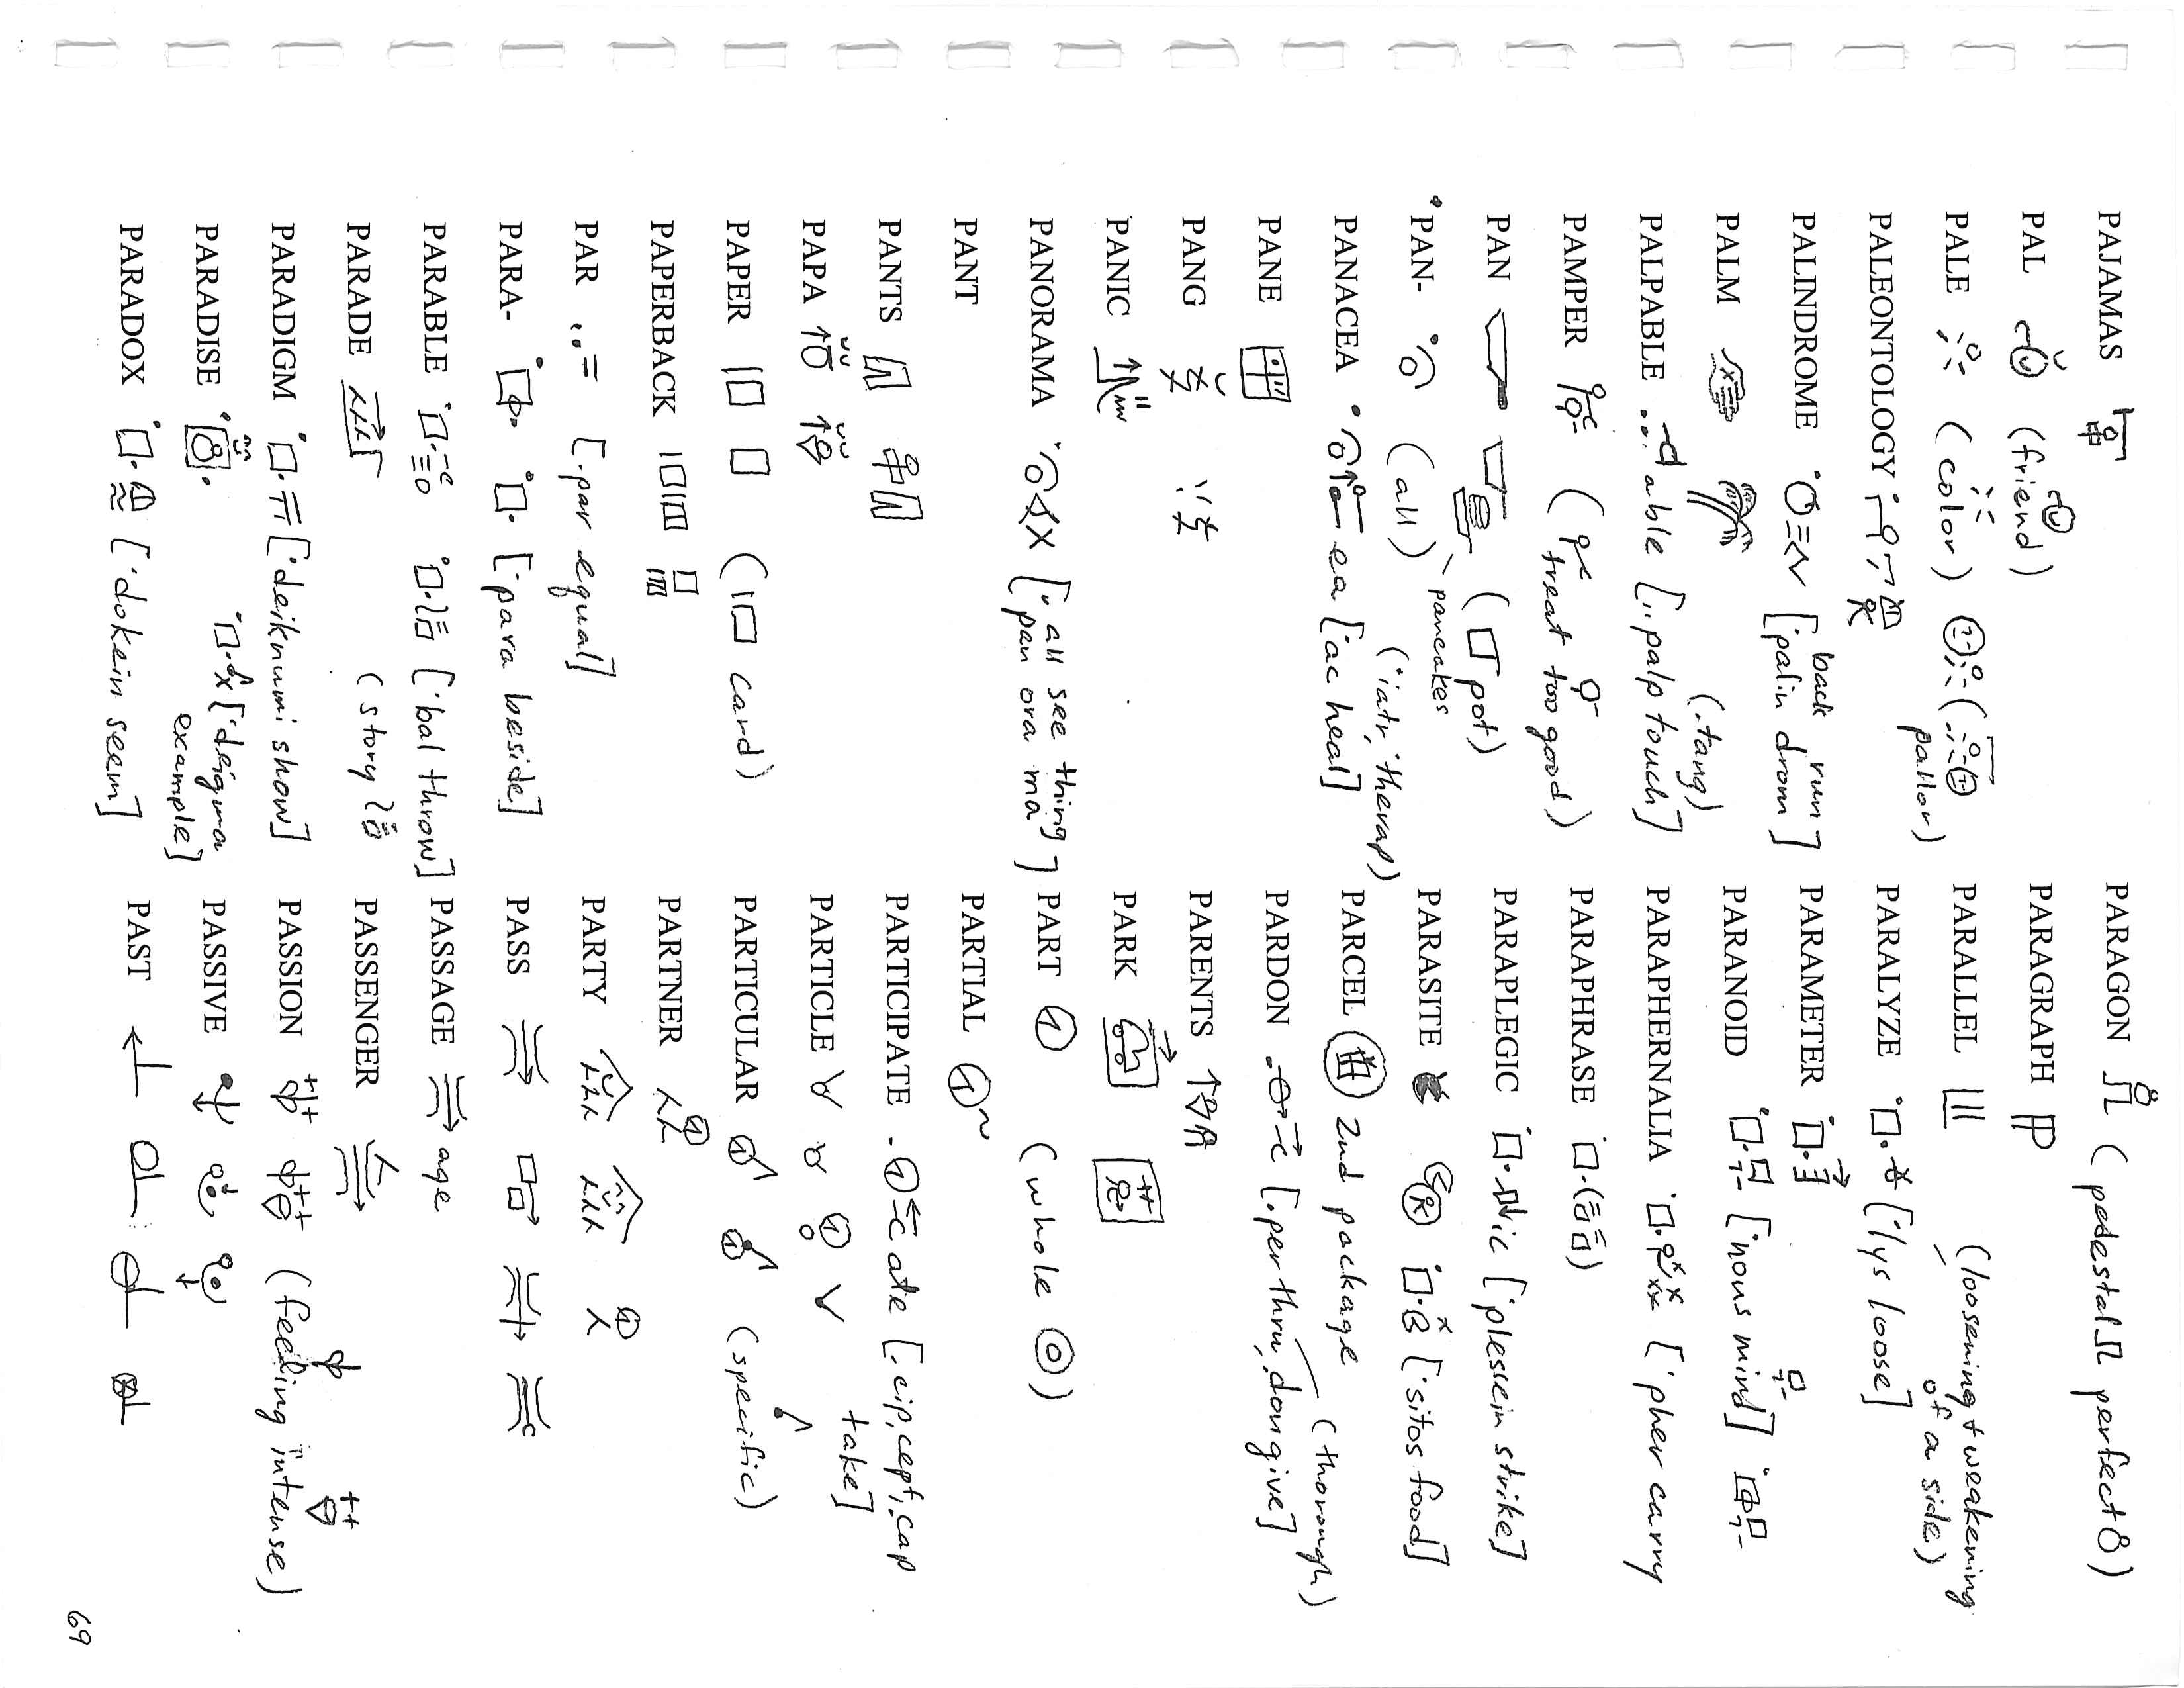 PAJAMAS
PAL (friend)
PALE (color) (
pallor)
PALEONTOLOGY
back run
PALINDROME [˙palin drom]
PALM (.tang)
PALPABLE able [..palp touch]
PAMPER (
treat too good)
PAN (pot)
pancakes
PAN- (all)
(˙iatr, ˙therap)
PANACEA ea [˙ac heal]
PANE
PANG
PANIC
all see thing
PANORAMA [˙pan ora ma]
PANT
PANTS
PAPA
PAPER ( card)
PAPERBACK
PAR [.par equal]
PARA- [˙para beside]
PARABLE [˙bal throw]
PARADE (story
PARADIGM [˙deiknumi show]
PARADISE [˙deigma
example]
PARADOX [˙dokein seem]
PARAGON (pedestal perfect)
PARAGRAPH
PARALLEL (loosening + weakening
of a side)
PARALYZE [˙lys loose]
PARAMETER
PARANOID [˙nous mind]
PARAPHERNALIA [˙pher carry
PARAPHRASE
PARAPLEGIC ic [˙plessein strike]
PARASITE [˙sitos food]
PARCEL 2nd package
(thorough)
PARDON [.per thru, don give]
PARENTS
PARK
PART (whole)
PARTIAL
PARTICIPATE cate [.cip, cept, cap
take]
PARTICLE
PARTICULAR (specific)
PARTNER
PARTY
PASS
PASSAGE age
PASSENGER
PASSION (feeling intense)
PASSIVE
PAST
69